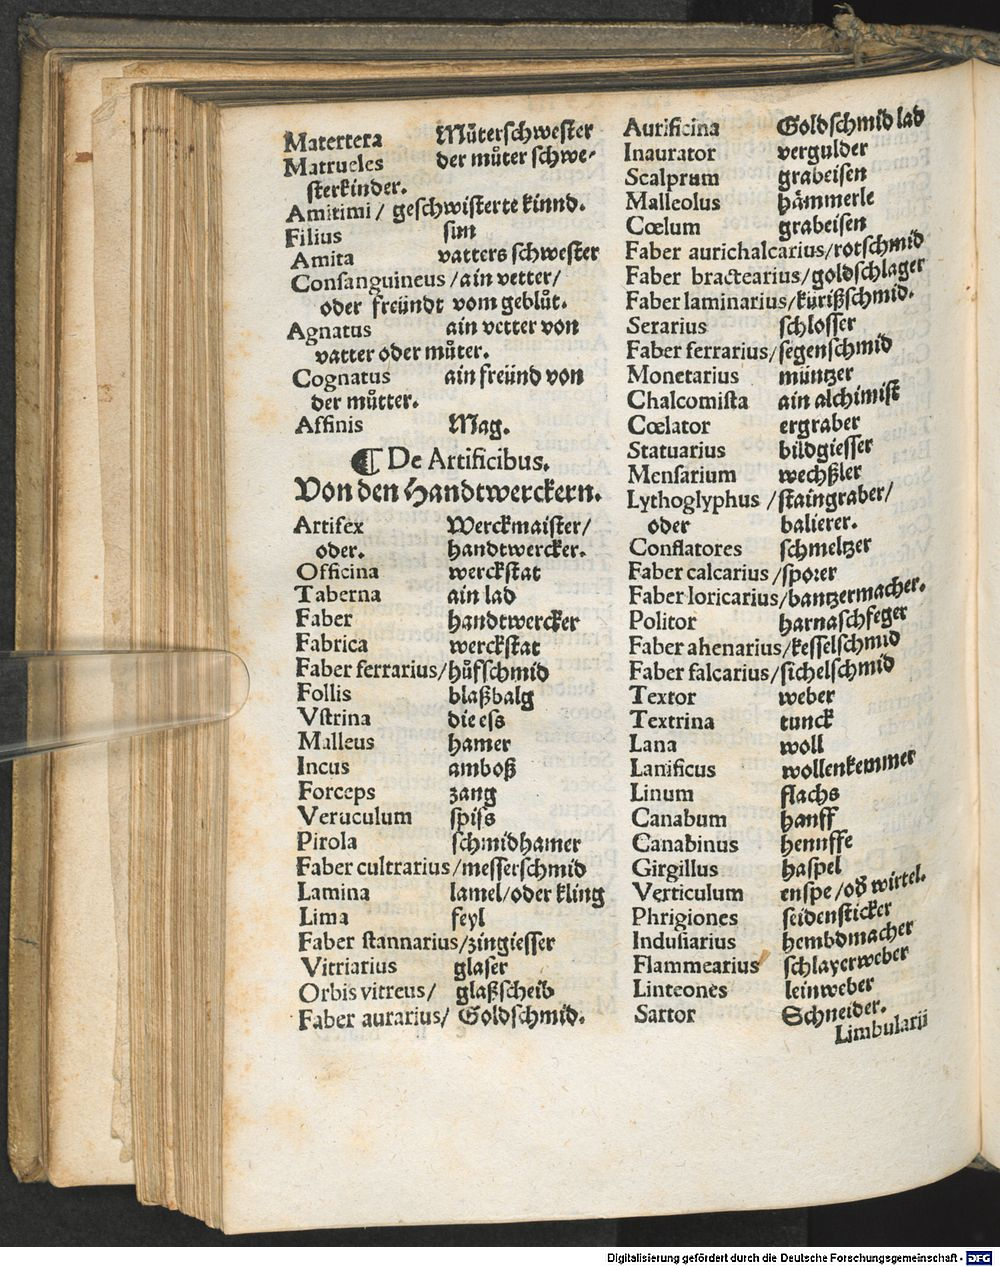 Matertera Můterschwester
Matrueles der můter schwe-
sterkinder.
Amitimi / geschwisterte kinnd.
Filius sun
Amita vatters schwester
Consanguineus /ain vetter/
oder freündt vom geblůt.
Agnatus ain vetter von
vatter oder můter.
Cognatus ain freünd von
der můtter.
Affinis Mag.
¶ De Artificibus.
Von den Handtwerckern.
Artifex Werckmaister/
oder. handtwercker.
Officina werckstat
Taberna ain lad
Faber handtwercker
Fabrica werckstat
Faber ferrarius/hůfschmid
Follis blaßbalg
Vstrina die ess
Malleus hamer
Incus amboß
Forceps zang
Veruculum spiss
Pirola schmidhamer
Faber cultrarius/messerschmid
Lamina lamel/oder kling
Lima feyl
Faber stannarius/zingiesser
Vitriarius glaser
Orbis vitreus/ glaßscheib
Faber aurarius/ Goldschmid.
Aurificina Goldschmid lad
Inaurator vergulder
Scalprum grabeisen
Malleolus hämmerle
Cœlum grabeisen
Faber aurichalcarius/rotschmid
Faber bractearius/goldschlager
Faber laminarius/kürißschmid.
Serarius schlosser
Faber ferrarius/segenschmid
Monetarius müntzer
Chalcomista ain alchimist
Cœlator ergraber
Statuarius bildgiesser
Mensarium wechßler
Lythoglyphus /staingraber/
oder balierer.
Conflatores schmeltzer
Faber calcarius /sporer
Faber loricarius/bantzermacher.
Politor harnaschfeger
Faber ahenarius/kesselschmid
Faber falcarius/sichelschmid
Textor weber
Textrina tunck
Lana woll
Lanificus wollenkemmer
Linum flachs
Canabum hanff
Canabinus hennffe
Girgillus haspel
Verticulum enspe/od̕ wirtel.
Phrigiones seidensticker
Indusiarius hembdmacher
Flammearius schlayerweber
Linteones leinweber
Sartor Schneider.
Limbularii
Digitalisierung gefördert durch die Deutsche Forschungsgemeinschaft - DFG